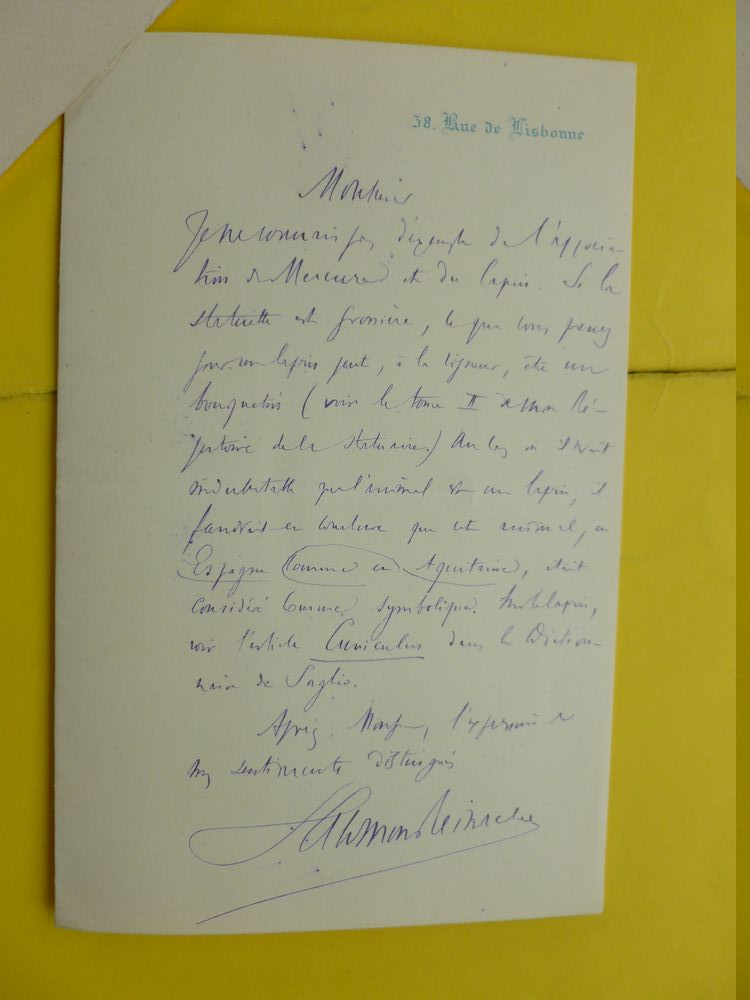 38. Rue de Lisbonne
Monsieur
Je ne connais pas d'exemple de l'associa-
tion de Mercure et du lapin. Si la
statuette est grossière, ce que vous prenez
pour un lapin peut, à la rigueur, être un
bouquetin (voir le tome II de mon Ré-
pertoire de la statuaire.) Au cas où il serait
indubitable que l'animal est un lapin, il
faudrait en conclure que cet animal, en
Espagne comme en Aquitaine, était
considéré comme symbolique. Sur le lapin,
voir l'article Cuniculus dans le Diction-
naire de Saglio.
Agréez, Monsieur, l'expression de
mes sentiments distingués
Salomon Reinach